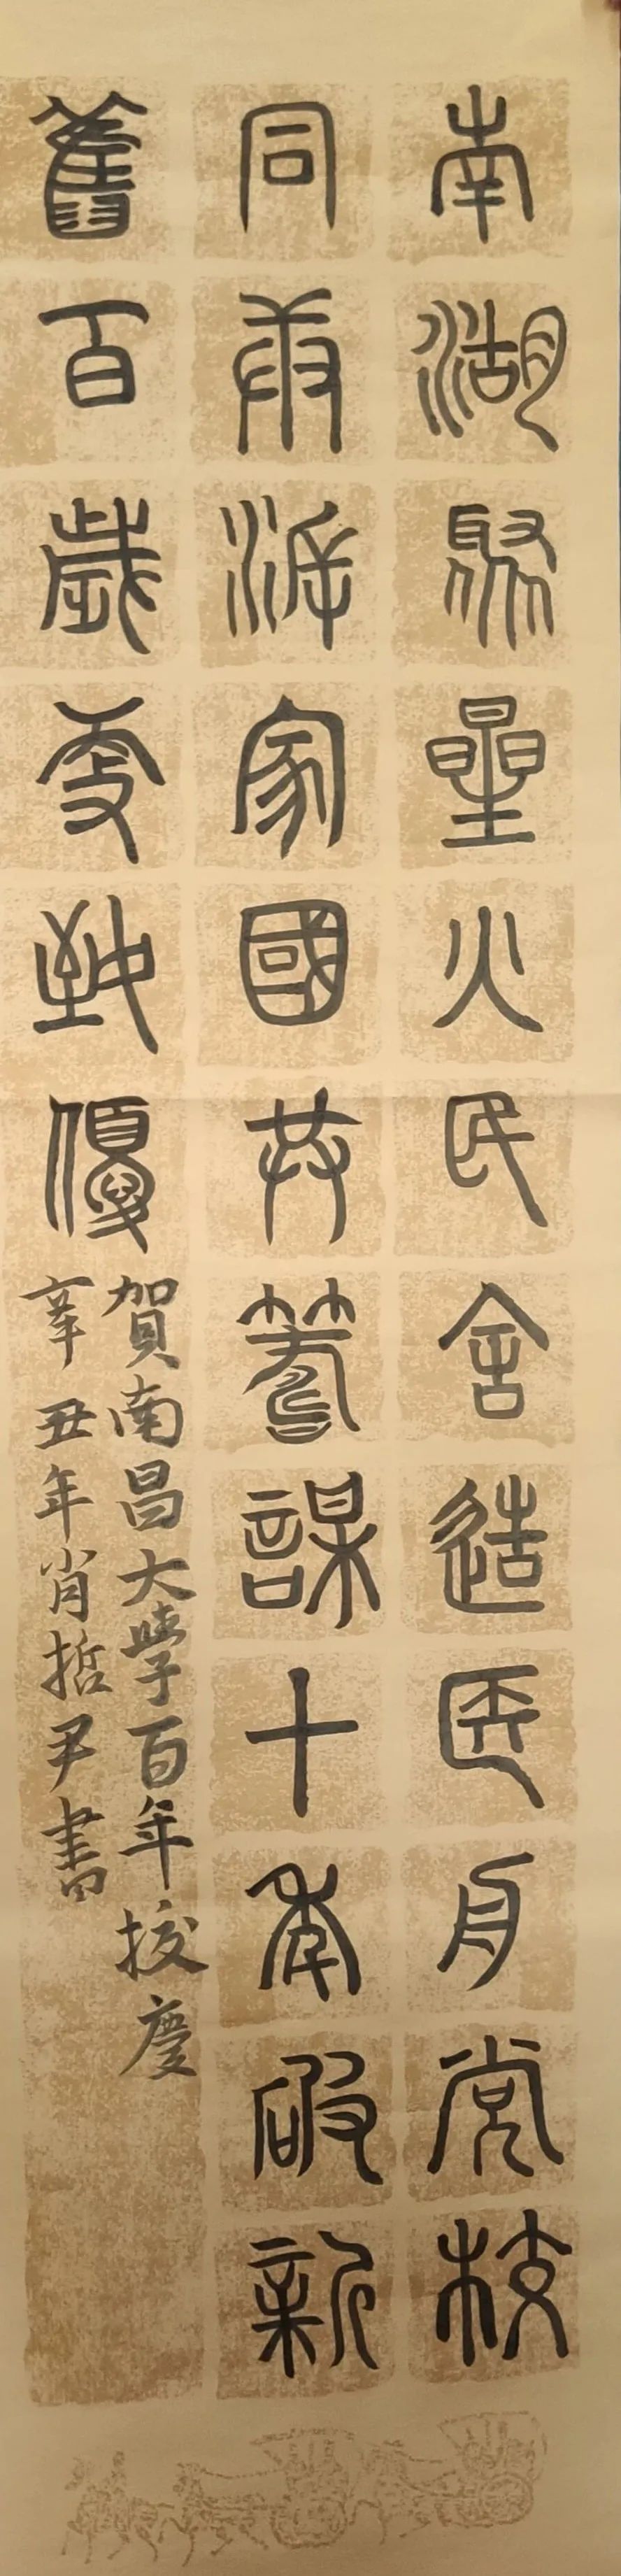 南湖聚星火民舍造匠舟党校
同庚游家國共籌謀十年破新
舊百歲更致優
賀南昌大學百年校慶
辛丑年肖哲尹書